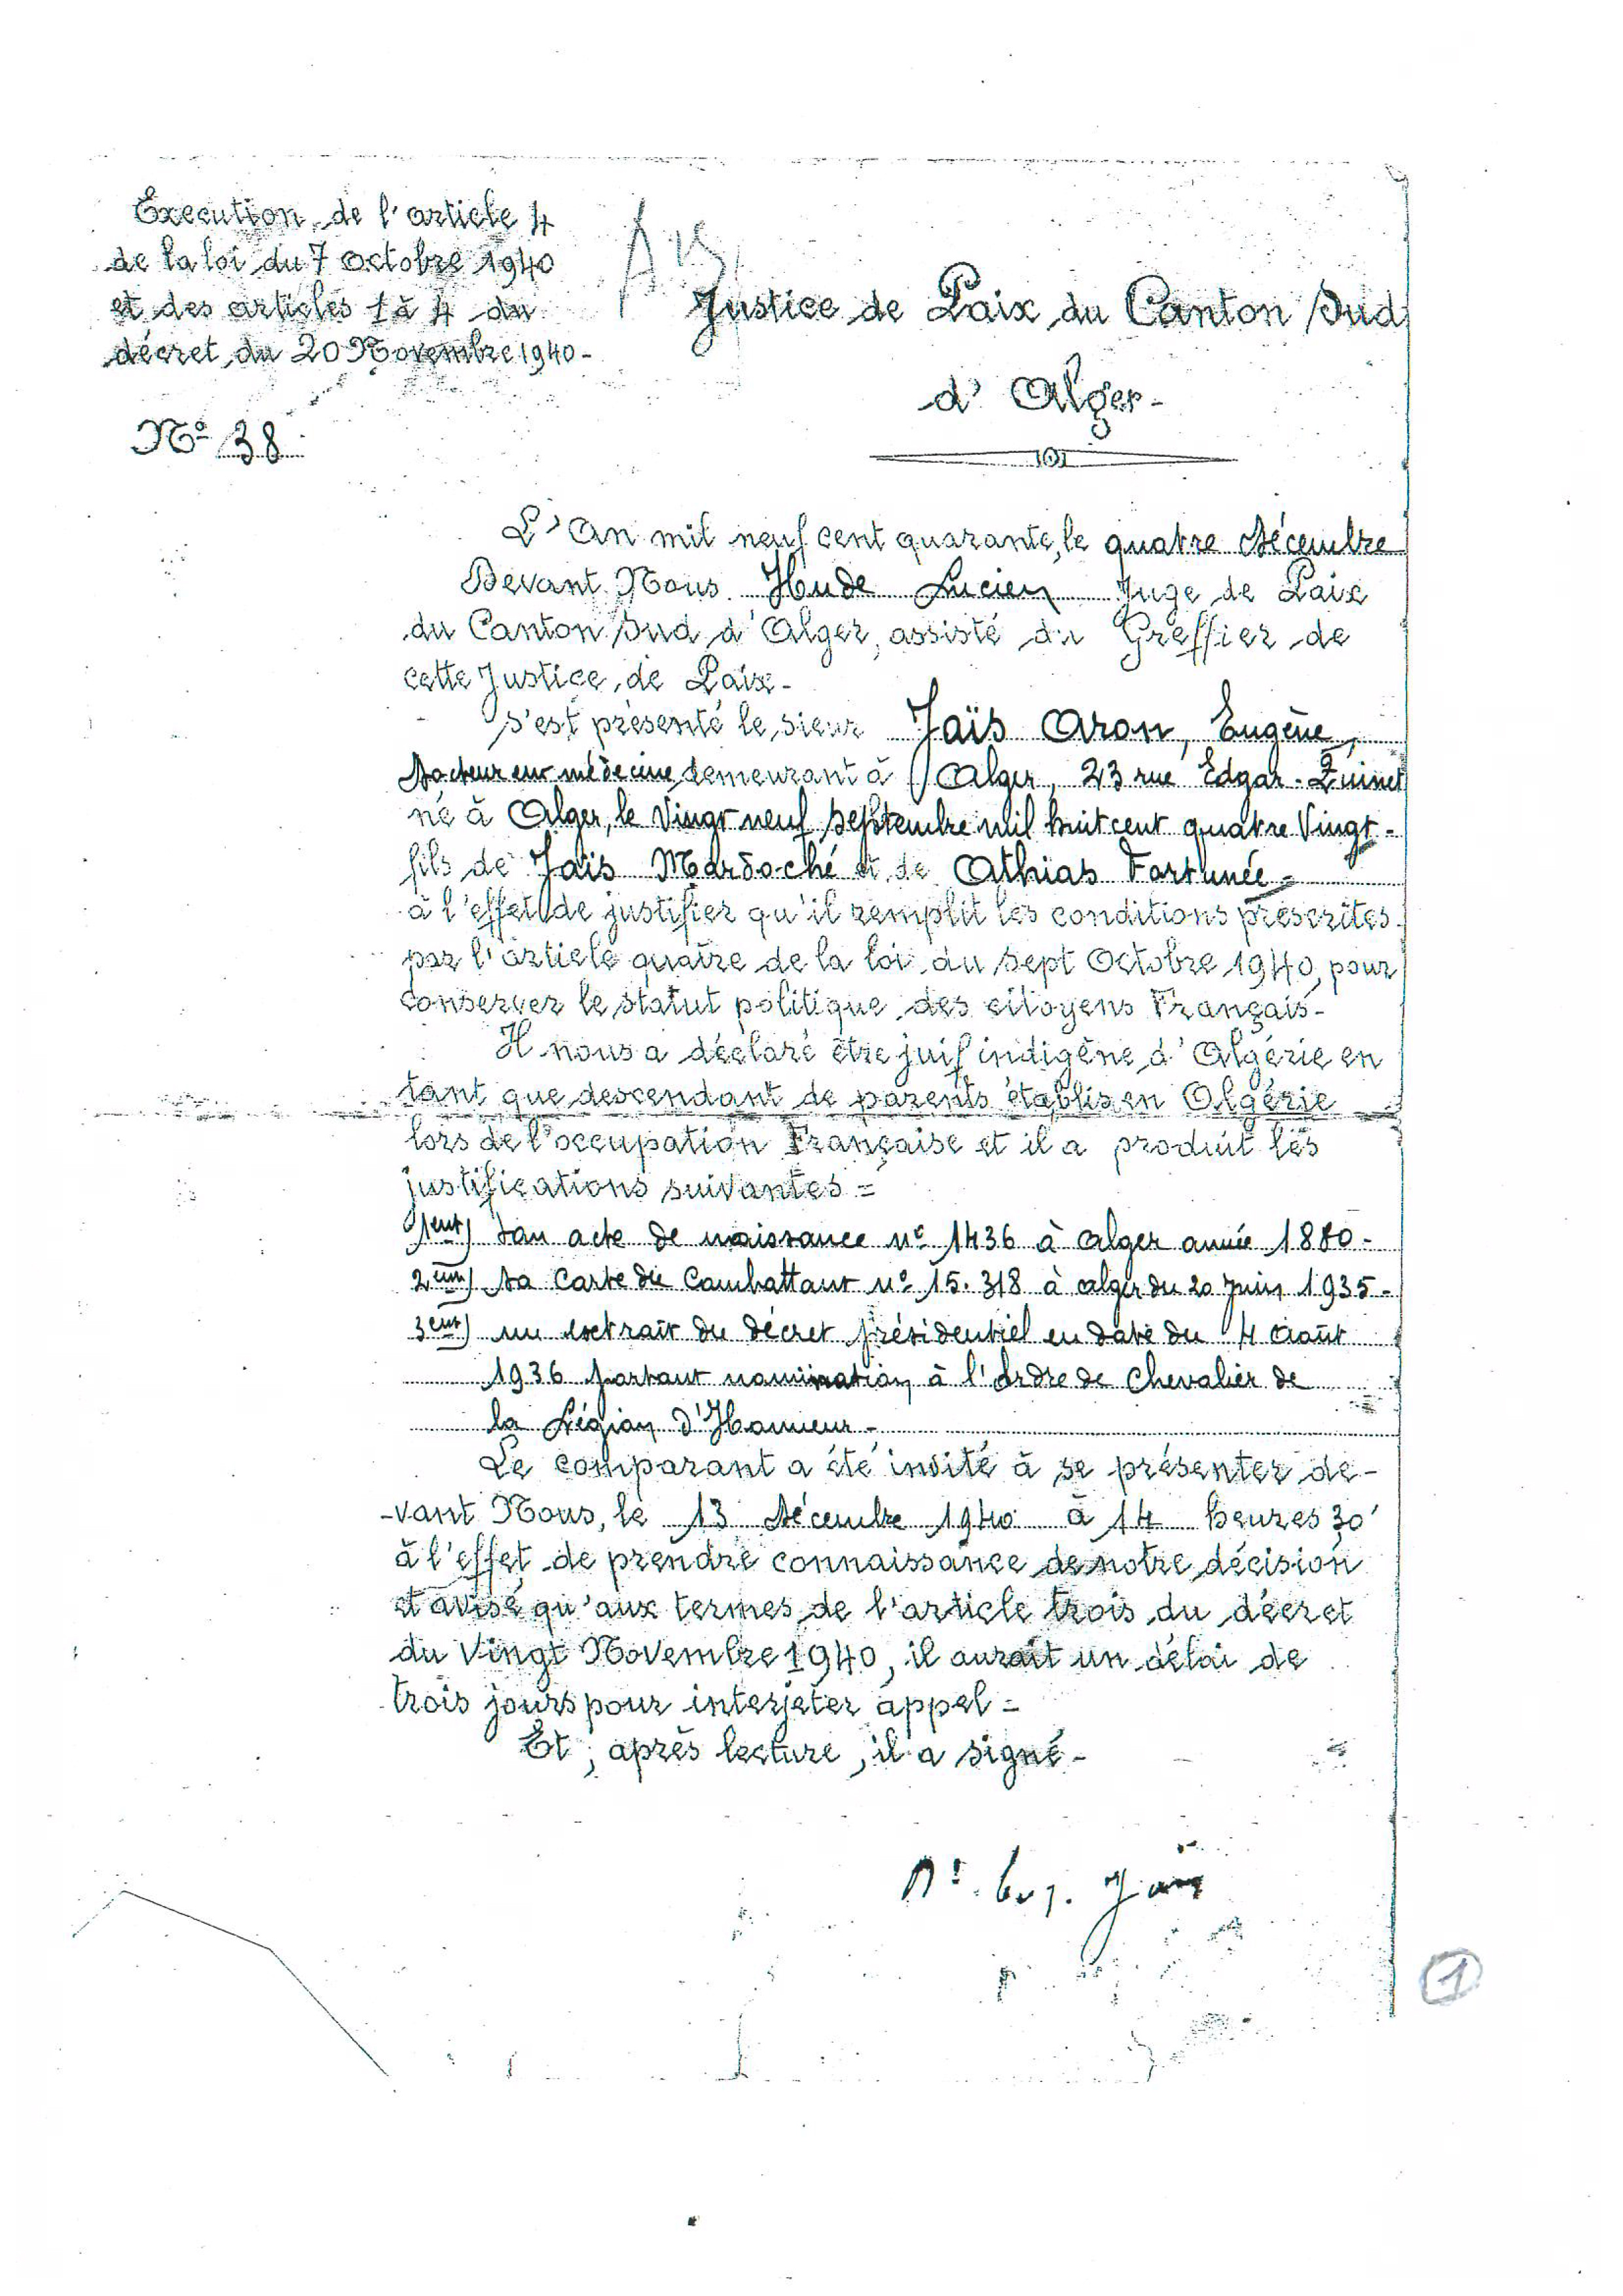 Execution de l'article 4
de la loi du 7 octobre 1940
et des articles 1 à 4 du
décret du 20 Novembre 1940-
Nº 38
Justice de Paix du Canton Sud
d'Alger-
L'An mil neuf cent quarante, le quatre Décembre
Devant Nous Hude Lucien Juge de Paix
du Canton Sud d'Alger, assisté du Greffier de
cette Justice de Paix-
s'est présenté le sieur Jaïs Aron, Eugène,
Docteur en médecine demeurant à Alger, 23 rue Edgar-Quinet
né à Alger, le Vingt neuf Septembre mil huit cent quatre Vingt-
fils de Jaïs Mardoché et de Athias Fortunée-
à l'effet de justifier qu'il remplit les conditions prescrites
par l'article quatre de la loi du sept Octobre 1940, pour
conserver le statut politique des citoyens Français-
Il nous a déclaré être juif indigène d'Algérie en
tant que descendant de parents établis en Algérie
lors de l'occupation Française et il a produit les
justifications suivantes =
1ent) Son acte de naissance nº 1436 à Alger année 1880-
2ent) Sa Carte du Combattant nº 15.318 à Alger du 20 Juin 1935-
3ent) un extrait du décret présidentiel en date du 4 Août
1936 portant nomination à l'Ordre de Chevalier de
la Légion d'Honneur-
Le comparant a été invité à se présenter de-
-vant Nous, le 13 Décembre 1940 à 14 heures 30'
à l'effet de prendre connaissance de notre décision
et avisé qu'aux termes de l'article trois du décret
du Vingt Novembre 1940, il aurait un délai de
trois jours pour interjeter appel =
Et, après lecture, il a signé-
Jaïs
1